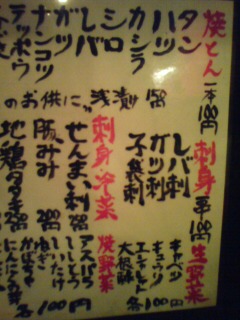 焼とん 一本100円
タン
ハツ
カシラ
シロ
レバ
ガツ
ナンコツ
テッポウ
刺身
100円
レバ刺
ガツ刺
子袋刺
のお供に"浅漬 150
生野菜
キャベツ
キュウリ
エシャレット
大根
各100円
刺身・冷菜
せんまい刺
豚みみ
地鶏タタキ
焼野菜
アスパラ
ししとう
しいたけ
ねぎ
かぼちゃ
にんにく
各100円